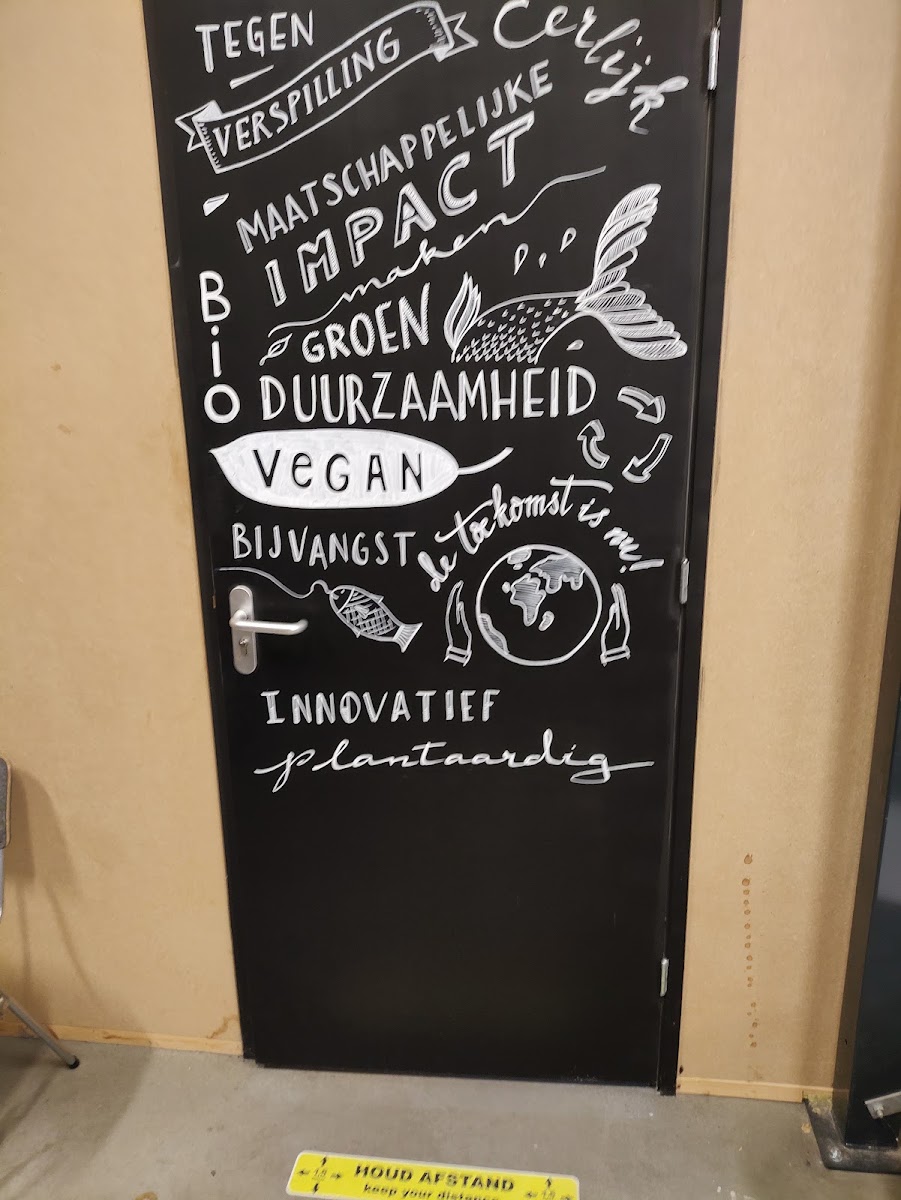 TEGEN
VERSPILLING
Eerlijk
MAATSCHAPPELIJKE
IMPACT
maken
BiO
GROEN
DUURZAAMHEID
VeGAN
BIJVANGST
de toekomst is nu!
INNOVATIEF
plantaardig
HOUD AFSTAND
keep your distance